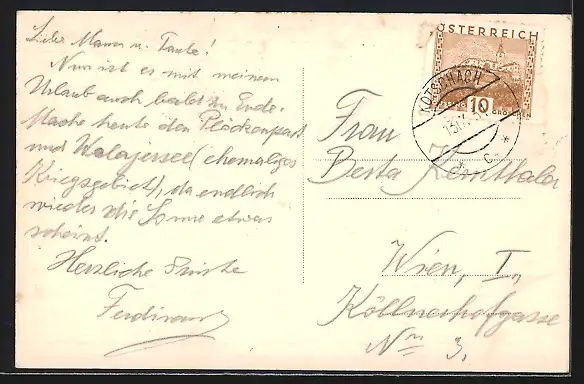 Liebe Mama u. Tante!
Nun ist es mit meinem
Urlaub auch bald zu Ende.
Mache heute den Plöckenpass
und Wolayersee (ehemaliges
Kriegsgebiet), da endlich
wieder die Sonne etwas
scheint.
Herzliche Grüsse
Ferdinand
ÖSTERREICH
KÖTSCHACH
10
GROSCHEN
Frau
Berta Kernthaler
Wien, I.,
Köllnerhofgasse
Nro 3.